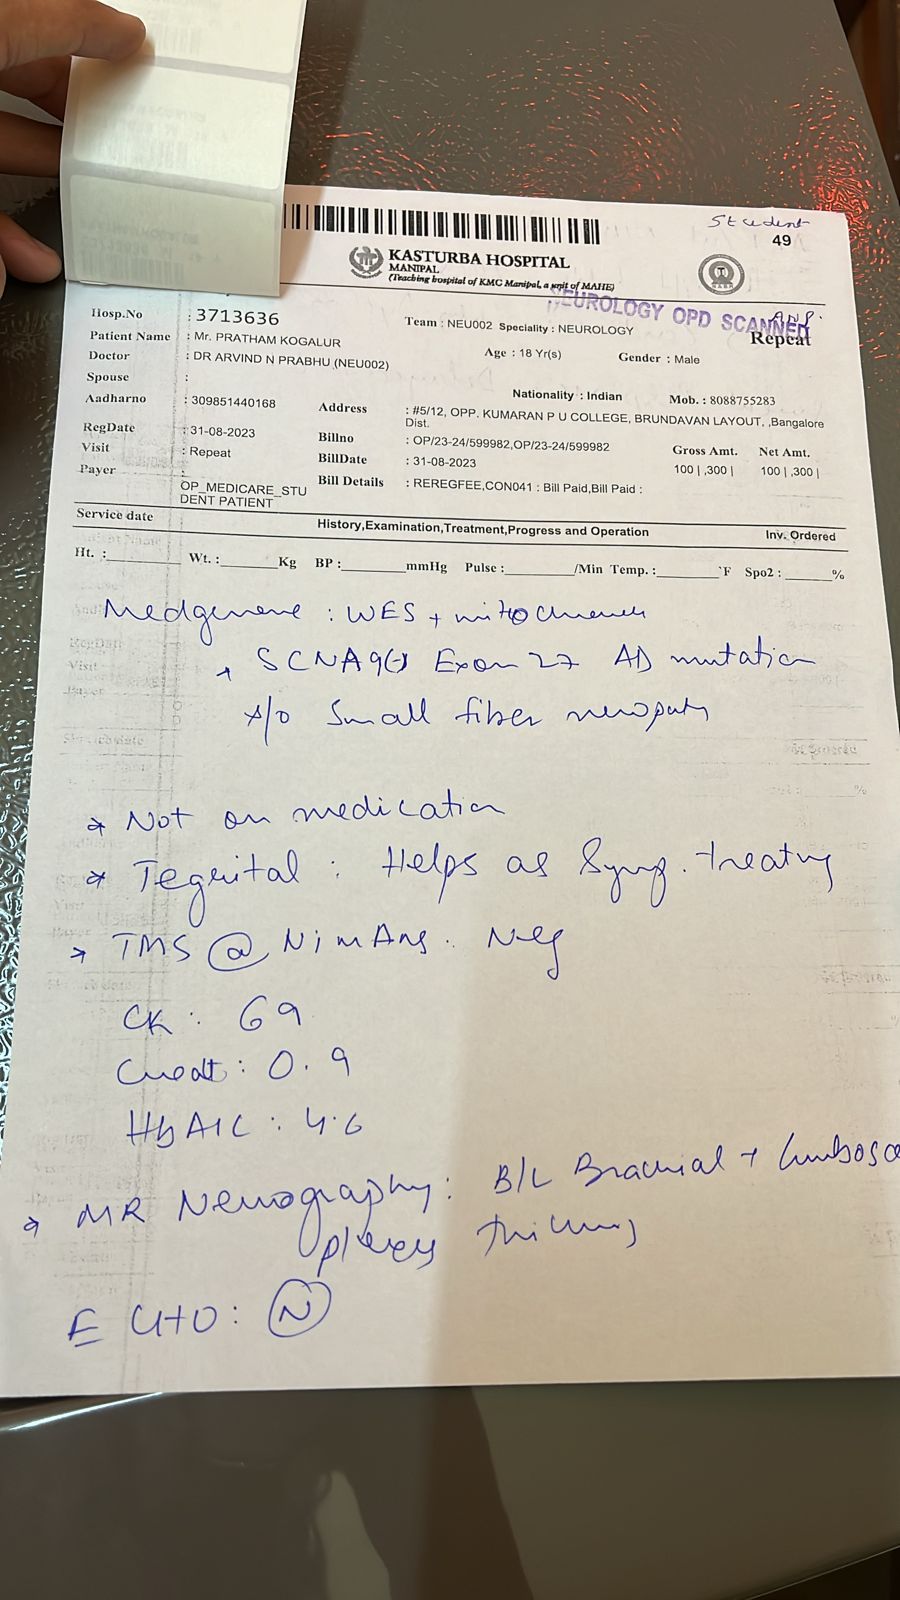 Student
49
KASTURBA HOSPITAL
MANIPAL
(Teaching hospital of KMC Manipal, a unit of MAHE)
NEUROLOGY OPD SCANNED
A.N.P.
Repeat
Hosp.No : 3713636
Team : NEU002 Speciality : NEUROLOGY
Patient Name : Mr. PRATHAM KOGALUR
Age : 18 Yr(s) Gender : Male
Doctor : DR ARVIND N PRABHU (NEU002)
Spouse :
Nationality : Indian Mob. : 8088755283
Aadharno : 309851440168
Address : #5/12, OPP. KUMARAN P U COLLEGE, BRUNDAVAN LAYOUT, ,Bangalore
Dist.
RegDate : 31-08-2023
Billno : OP/23-24/599982,OP/23-24/599982
Gross Amt. Net Amt.
Visit : Repeat
BillDate : 31-08-2023
100 | ,300 | 100 | ,300 |
Payer :
OP_MEDICARE_STU
DENT PATIENT
Bill Details : REREGFEE,CON041 : Bill Paid,Bill Paid :
Service date History,Examination,Treatment,Progress and Operation Inv. Ordered
Ht. :______ Wt. :______Kg BP :______mmHg Pulse:______/Min Temp. :______°F Spo2 :______%
Medgenome : WES + mitochrome
SCNA9 Exon 27 AD mutation
Small fiber neuropathy
Not on medication
Tegrital : Helps as Symp. treating
TMS @ NimAns. Neg
CK : 69
Creat : 0.9
HbA1C : 4.6
MR Neurography : B/L Brachial + lumbosac
plexus
ECHO : N